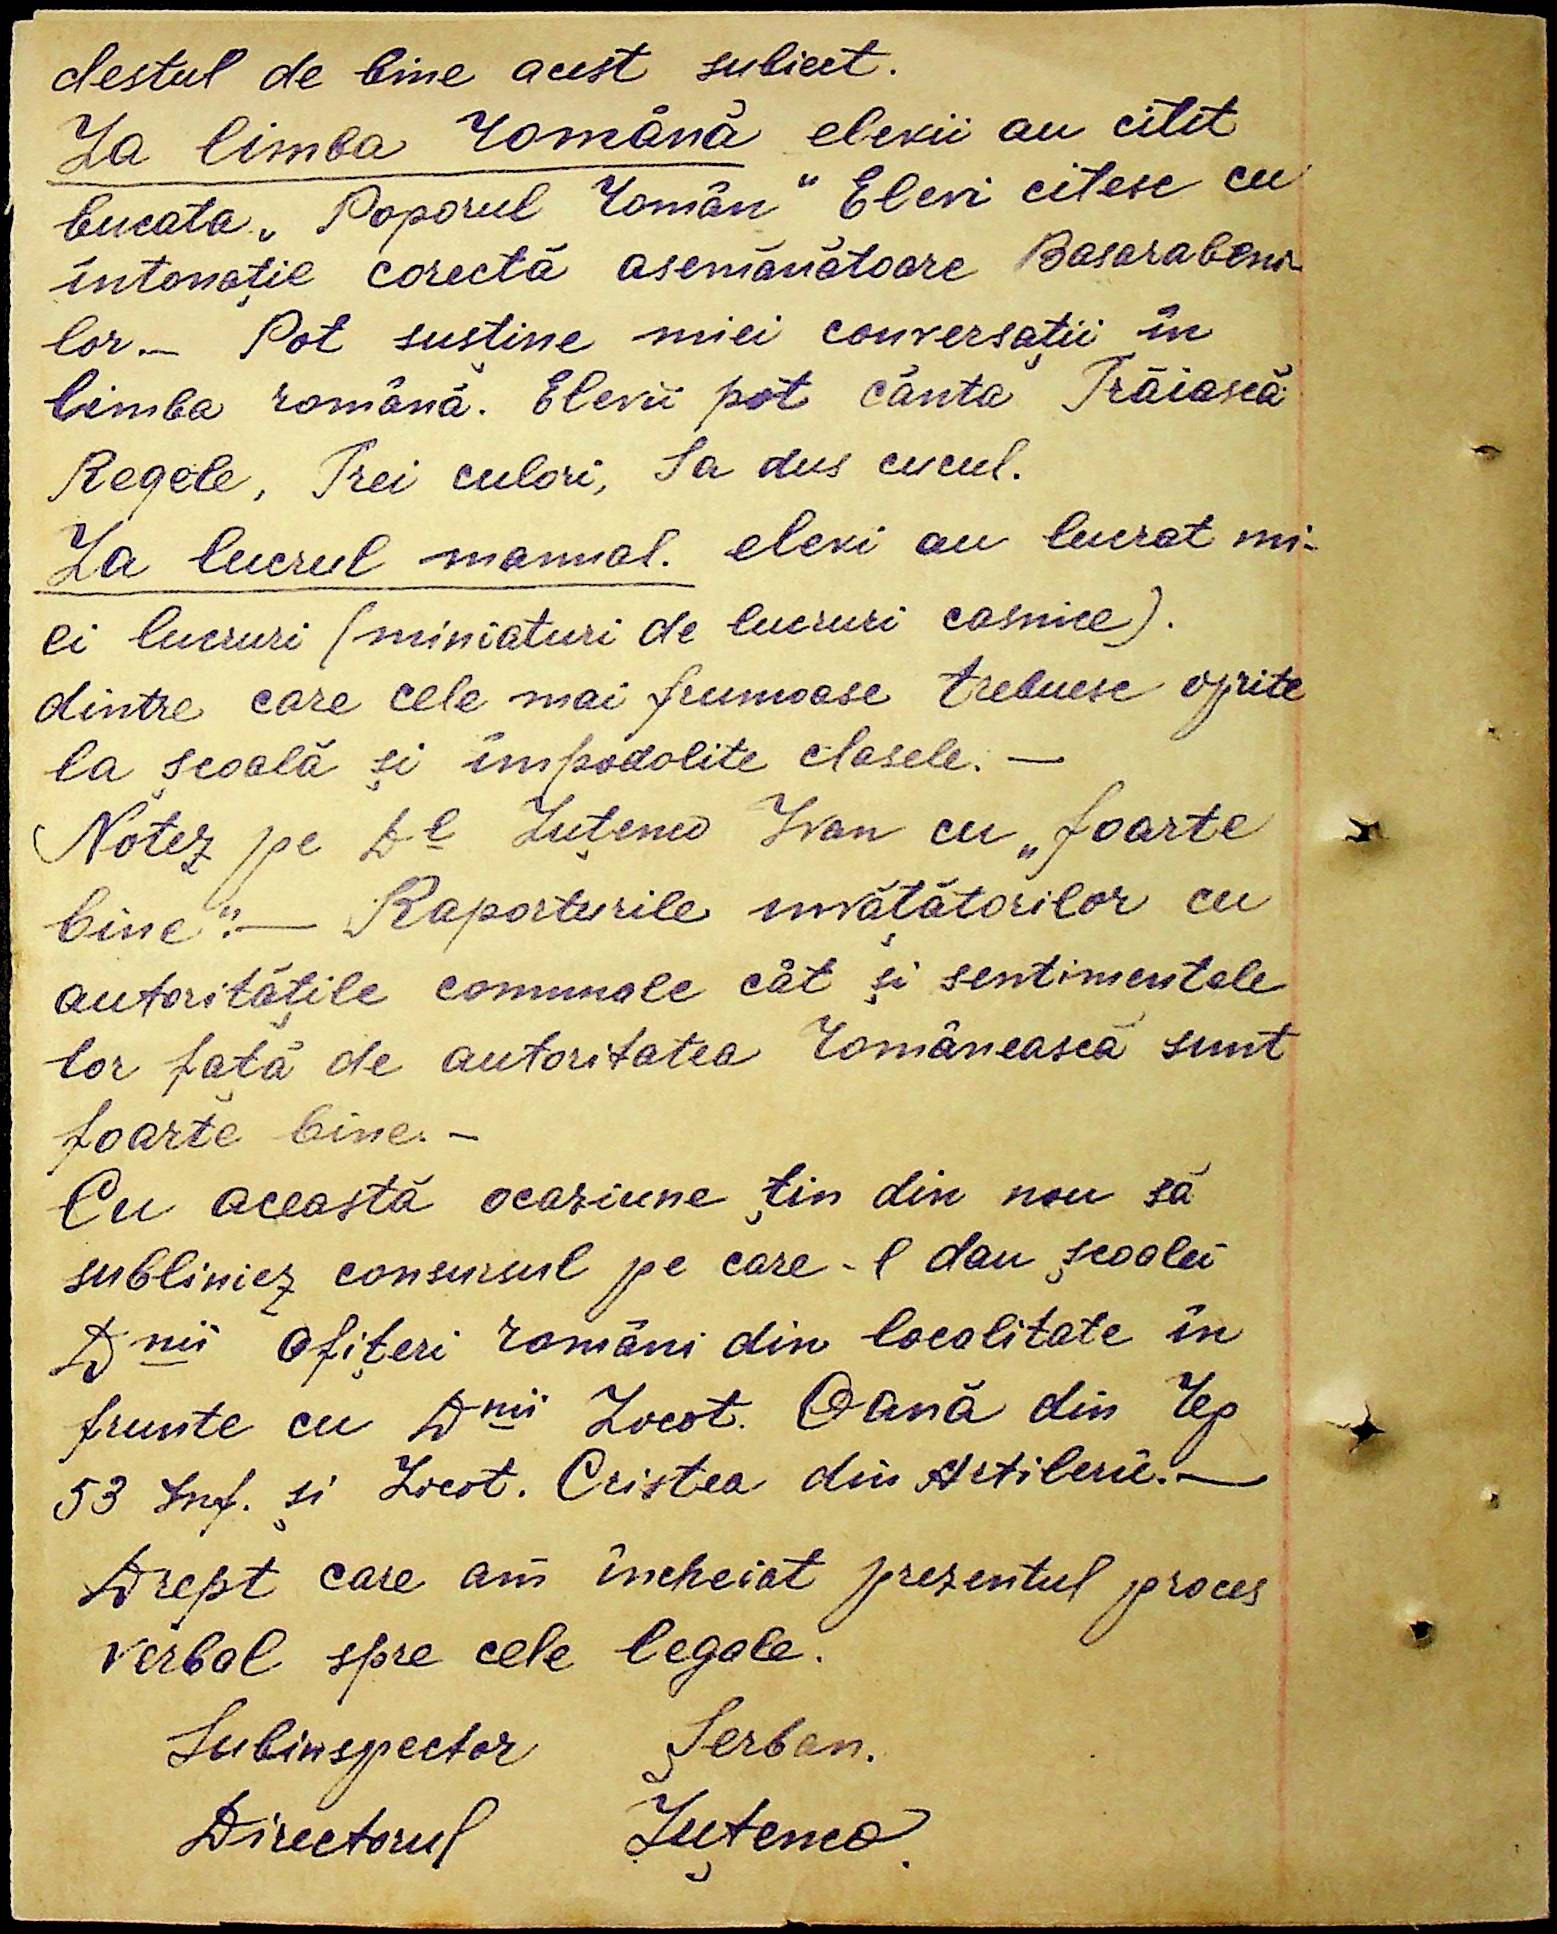 destul de bine acest subiect.
La limba Română elevii au citit
bucata „Poporul Român" Elevi citesc cu
intonație corectă asemănătoare Basarabeni-
lor. — Pot susține mici conversații în
limba română. Elevii pot cânta Trăiască
Regele, Trei culori, Sa dus cucul.
La lucrul manual. elevi au lucrat mi-
ci lucruri (miniaturi de lucruri casnice).
dintre care cele mai frumoase trebuesc oprite
la școală și împodobite clasele. —
Notez pe Dl Luțenco Ivan cu „foarte
bine". — Raporturile învățătorilor cu
autoritățile comunale cât și sentimentele
lor față de autoritatea Românească sunt
foarte bine. —
Cu această ocaziune țin din nou să
subliniez consursul pe care-l dau școalei
Dnii Ofițeri români din localitate în
frunte cu Dnii Locot. Oană din Reg
53 Inf. și Locot. Cristea din Artilerie. —
Drept care am încheiat prezentul proces
verbal spre cele legale.
Subinspector Șerban.
Directorul Luțenco